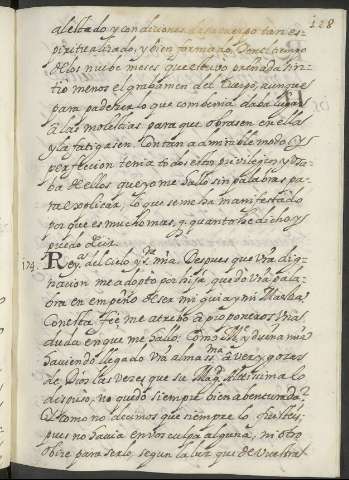 128
al estado, y condiciones de su cuerpo tan es-
piritualizado, y bien formado. Por el tiempo
de los nuebe meses que estuvo preñada sin-
tio menos el grabamen del Cuerpo, aunque
para padecer lo que combenia daba lugar
a las molestias para que obrasen en ella
y la fatigasen. Con tan admirable modo, y
perfeccion tenia todos estos privilegios, y usa-
ba de ellos que yo me hallo sin palabras pa-
ra explicar lo que se me ha manifestado
porque es mucho mas, q. quanto he dicho, y
puedo decir.
124. Reyna del Cielo y Sra. mia. Despues que vra dig-
nacion me adopto por hija quedó vra pala-
bra en empeño de ser mi guia, y mi Maestra
Con esta feé me atrebo a proponeros una
duda en que me hallo. Como Me. y dueña mia
haviendo llegado vra alma SSma. a ver, y gozar
de Dios las veces que su Magd. Altissima lo
dispuso, no quedó siempre bienabenturada?
Y como no decimos que siempre lo fuisteis,
pues no havia en vos culpa alguna, ni otro
obice para serlo, segun la luz que de vuestra